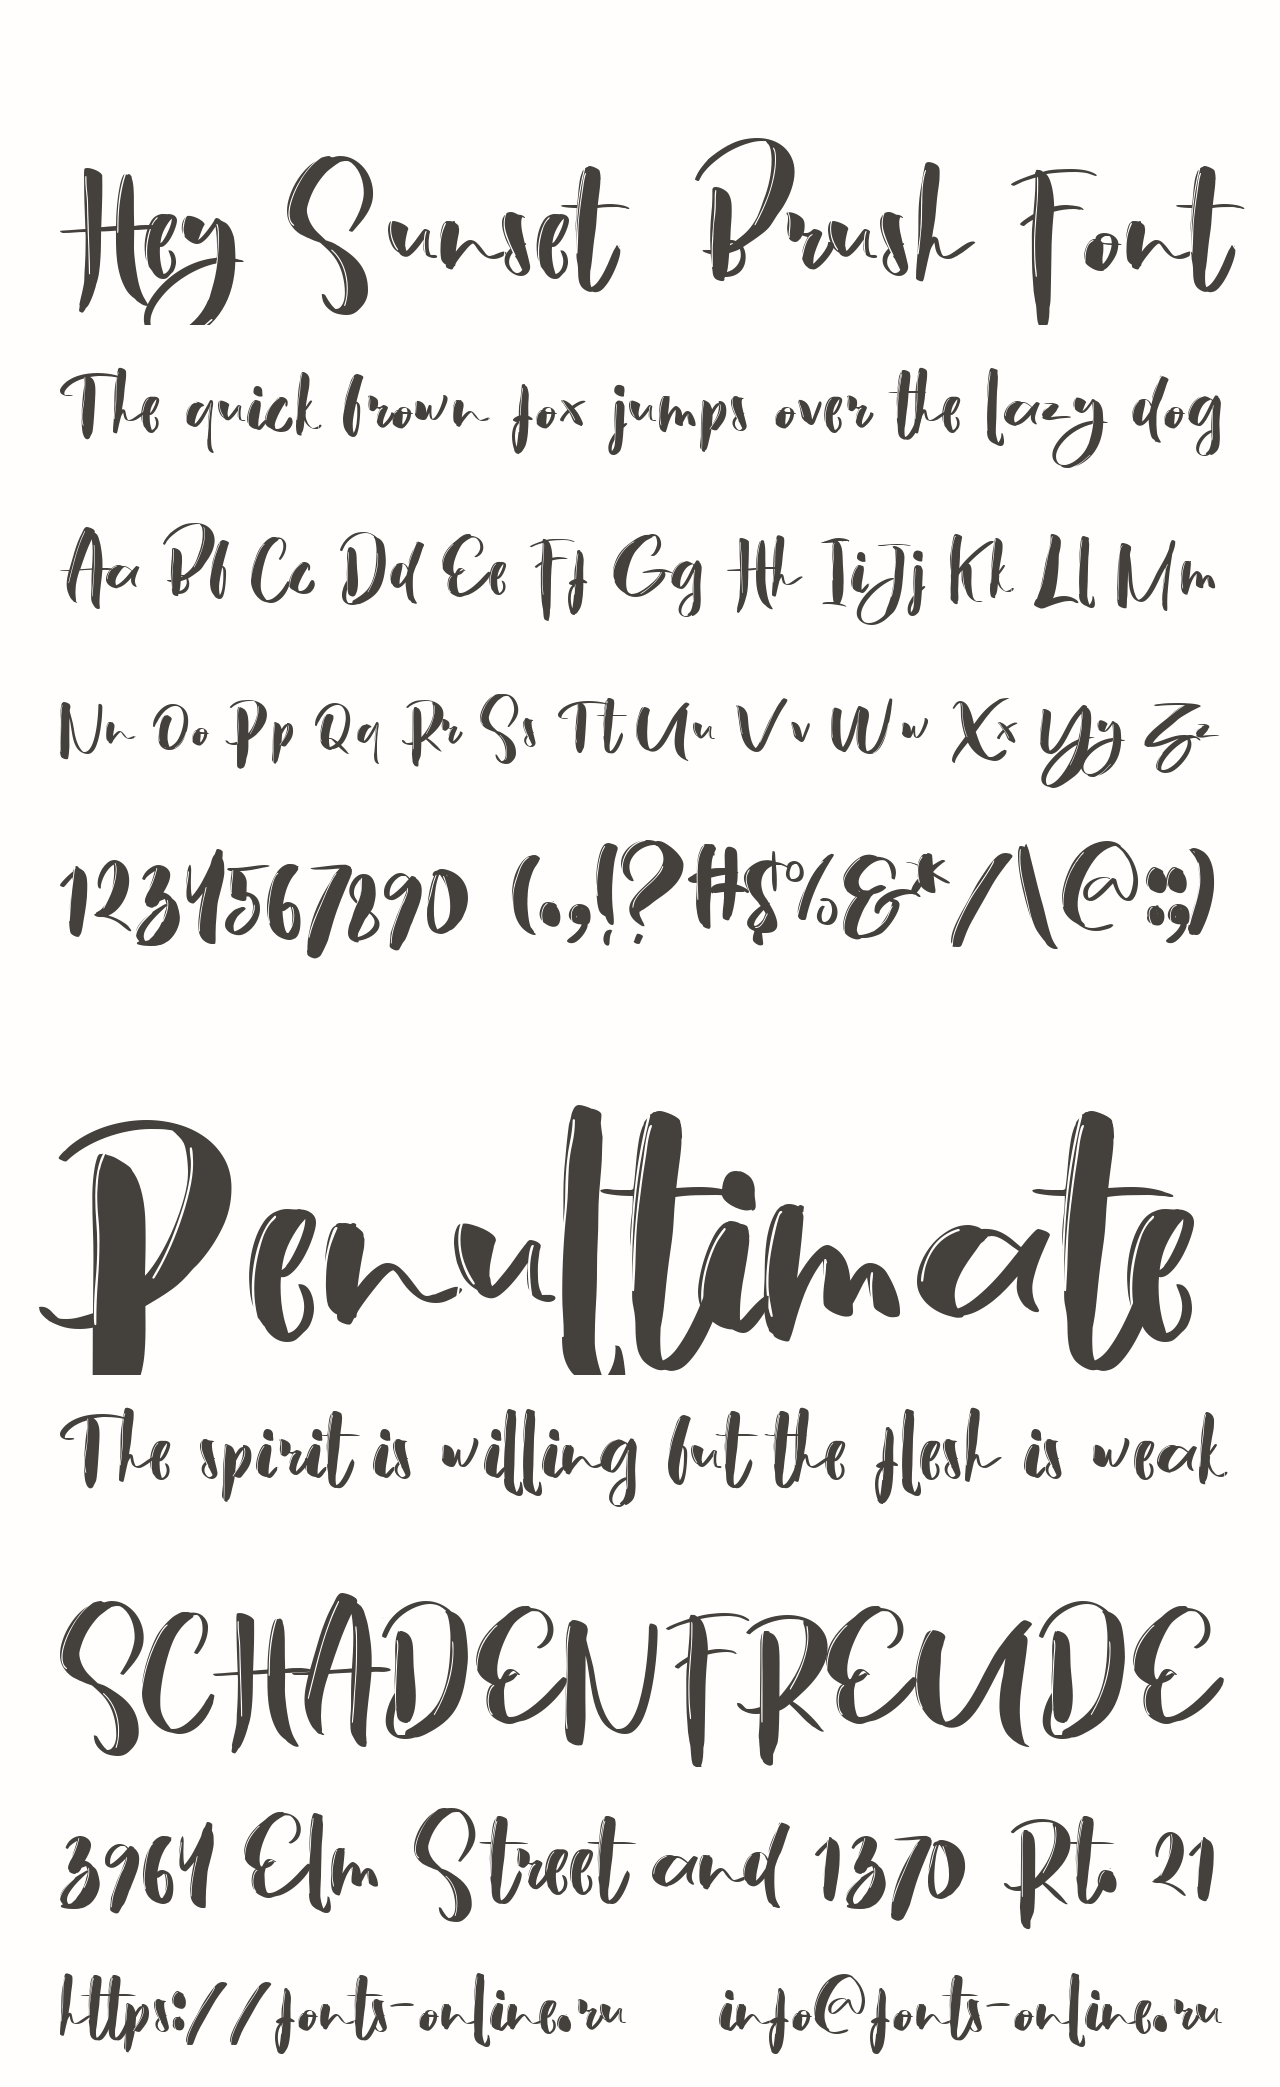 Hey Sunset Brush Font
The quick brown fox jumps over the lazy dog
Aa Bb Cc Dd Ee Ff Gg Hh IiJj Kk Ll Mm
Nn Oo Pp Qq Rr Ss Tt Uu Vv Ww Xx Yy Zz
1234567890 (.,!?#$%&*/\@:;)
Penultimate
The spirit is willing but the flesh is weak
SCHADENFREUDE
3964 Elm Street and 1370 Rt. 21
https://fonts-online.ru info@fonts-online.ru